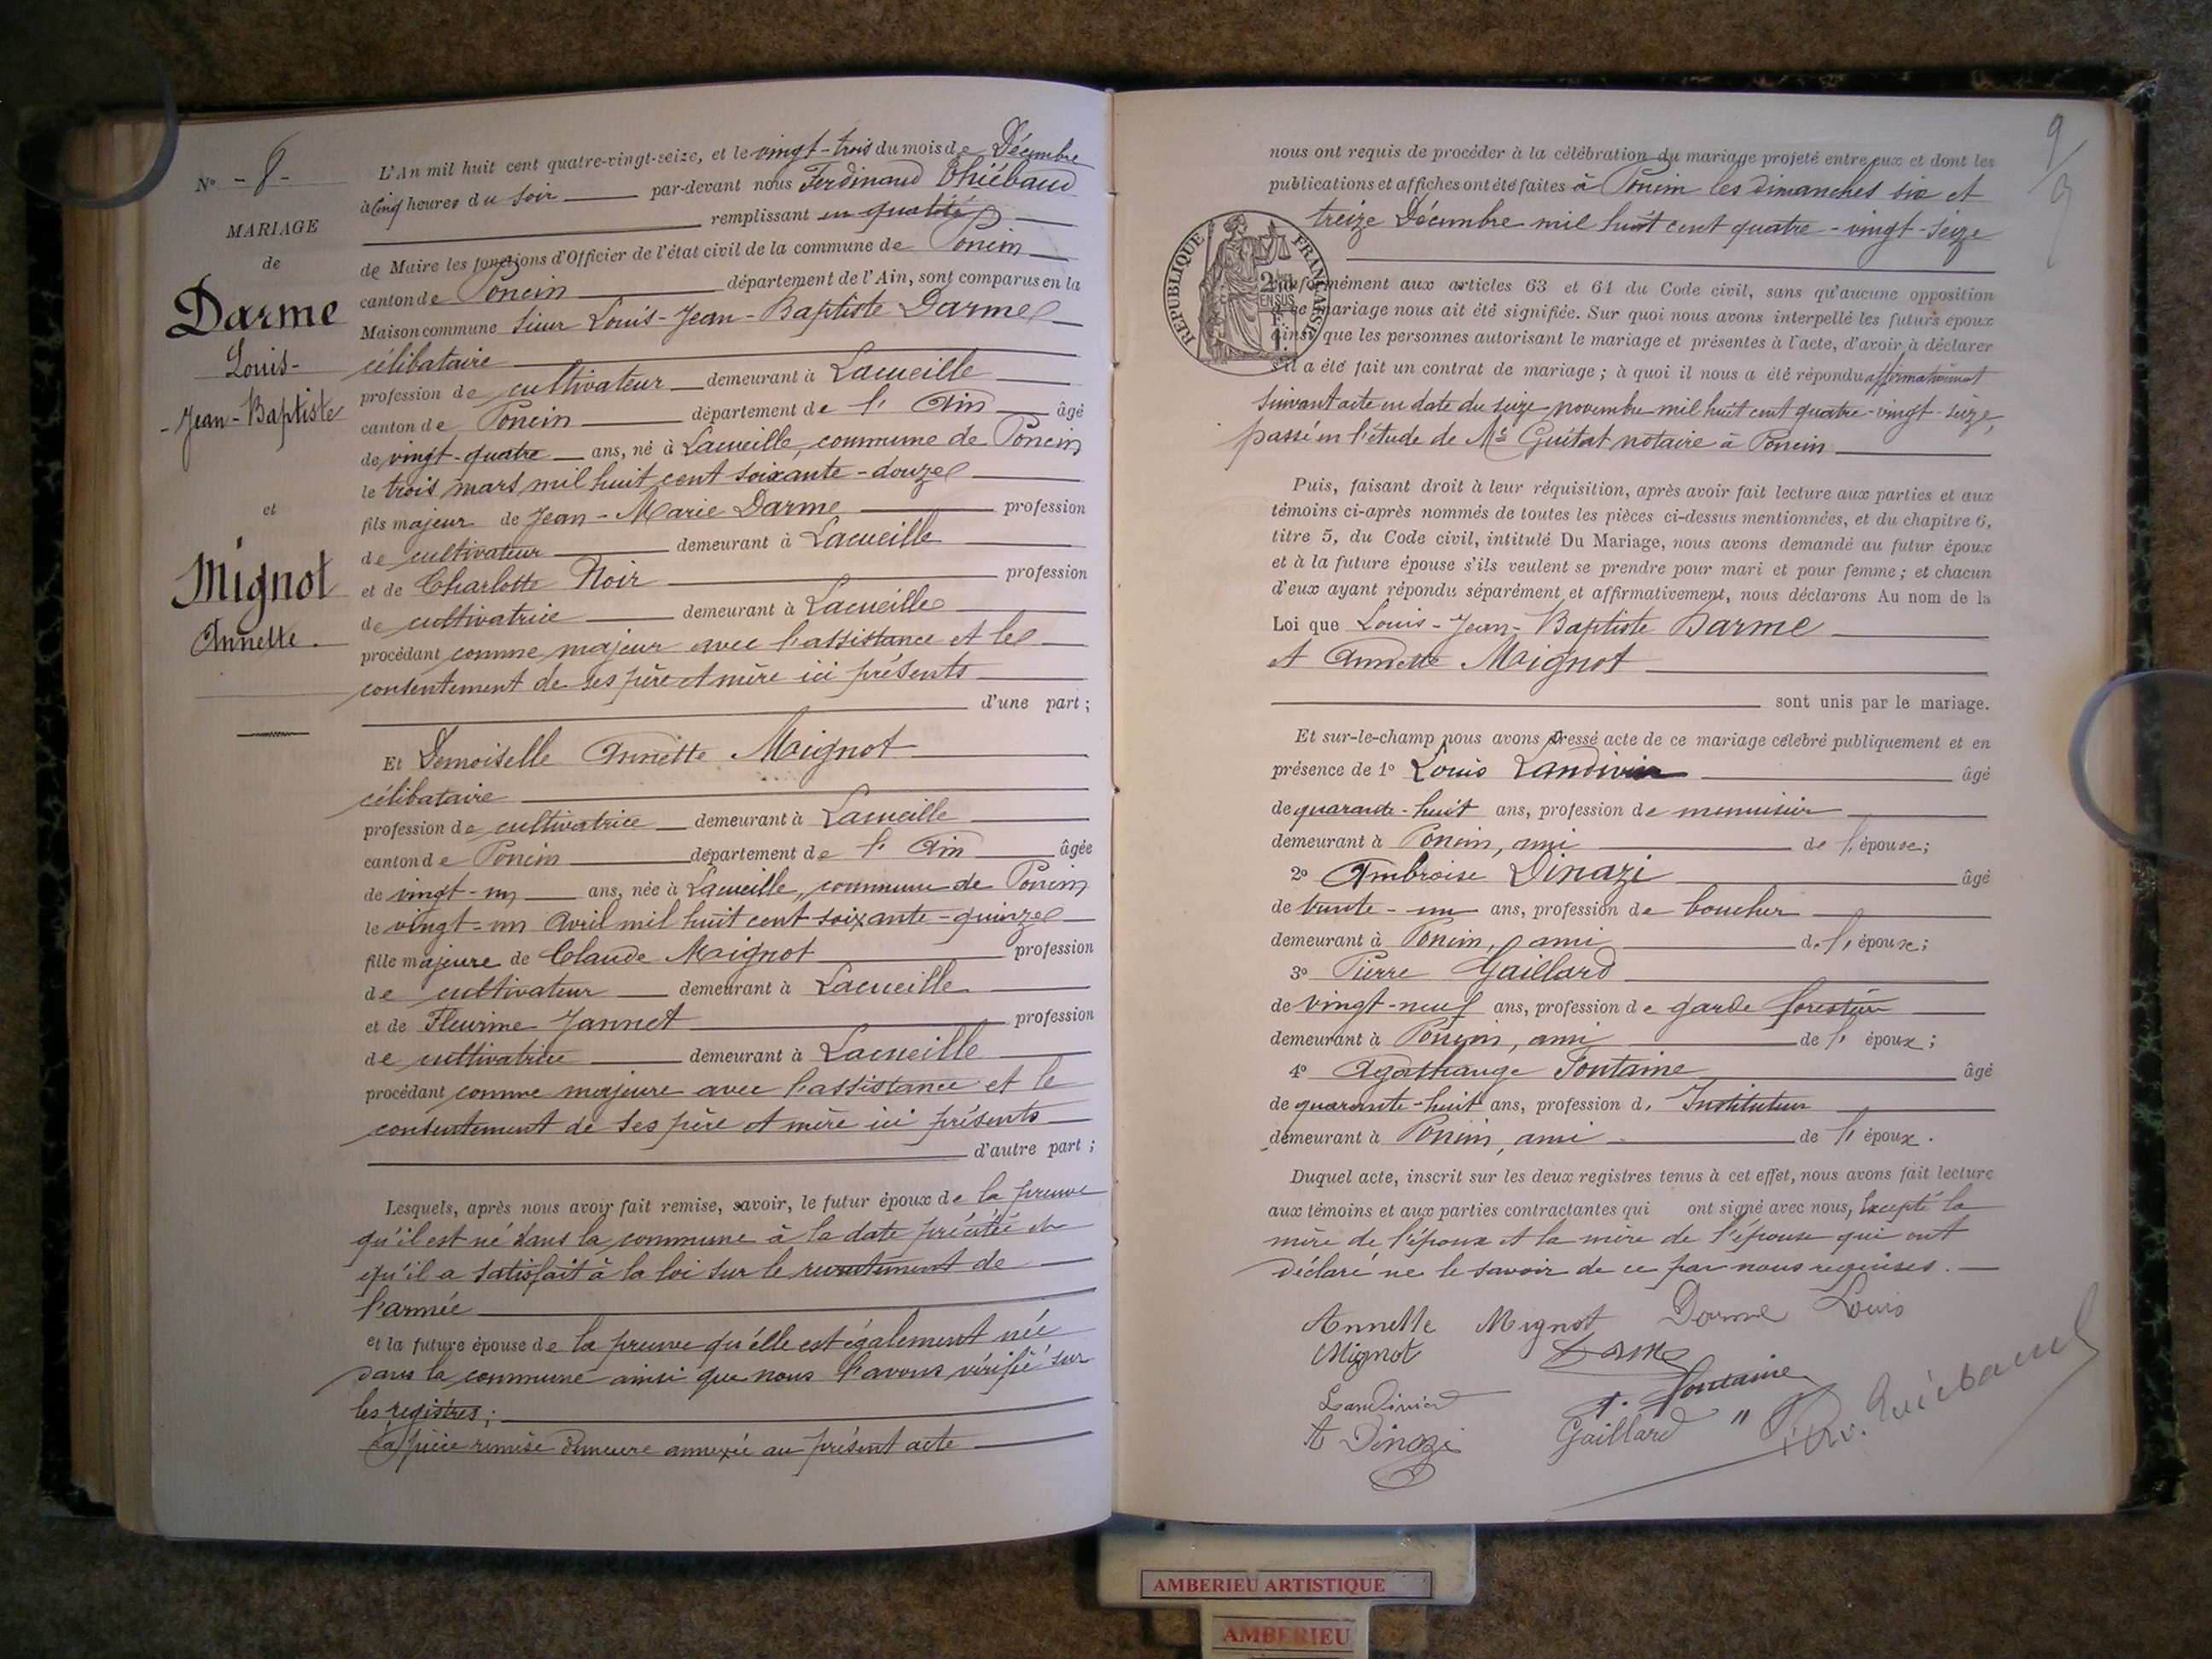 N° - 8 -
MARIAGE
de
Darme
Louis-
-Jean-Baptiste
et
Mignot
Annette.
L'An mil huit cent quatre-vingt-seize, et le vingt-trois du mois de Décembre
à Cinq heures du Soir par-devant nous Ferdinand Thiébaud
remplissant en qualité
de Maire les fonctions d'Officier de l'état civil de la commune de Poncin
canton de Poncin département de l'Ain, sont comparus en la
Maison commune Sieur Louis-Jean-Baptiste Darme
célibataire
profession de cultivateur demeurant à Lacueille
canton de Poncin département de l'Ain âgé
de vingt-quatre ans, né à Lacueille, commune de Poncin
le trois mars mil huit cent soixante-douze
fils majeur de Jean-Marie Darme profession
de cultivateur demeurant à Lacueille
et de Charlotte Noir profession
de cultivatrice demeurant à Lacueille
procédant comme majeur avec l'assistance et le
consentement de ses père et mère ici présents
d'une part;
Et Demoiselle Annette Mignot
célibataire
profession de cultivatrice demeurant à Lacueille
canton de Poncin département de l'Ain âgée
de vingt-un ans, née à Lacueille, commune de Poncin
le vingt-un Avril mil huit cent soixante-quinze
fille majeure de Claude Mignot profession
de cultivateur demeurant à Lacueille
et de Fleurine Jannet profession
de cultivatrice demeurant à Lacueille
procédant comme majeure avec l'assistance et le
consentement de ses père et mère ici présents
d'autre part;
Lesquels, après nous avoir fait remise, savoir, le futur époux de la preuve
qu'il est né dans la commune à la date précitée et
qu'il a satisfait à la loi sur le recrutement de
l'armée
et la future épouse de la preuve qu'elle est également née
dans la commune ainsi que nous l'avons vérifié sur
les registres;
La pièce remise demeure annexée au présent acte
9
9
nous ont requis de procéder à la célébration du mariage projeté entre eux et dont les
publications et affiches ont été faites à Poncin les dimanches six et
treize Décembre mil huit cent quatre-vingt-seize
RÉPUBLIQUE FRANÇAISE
conformément aux articles 63 et 64 du Code civil, sans qu'aucune opposition
à ce mariage nous ait été signifiée. Sur quoi nous avons interpellé les futurs époux
ainsi que les personnes autorisant le mariage et présentes à l'acte, d'avoir à déclarer
s'il a été fait un contrat de mariage; à quoi il nous a été répondu affirmativement
suivant acte en date du seize novembre mil huit cent quatre-vingt-seize,
passé en l'étude de Me Guitat notaire à Poncin
Puis, faisant droit à leur réquisition, après avoir fait lecture aux parties et aux
témoins ci-après nommés de toutes les pièces ci-dessus mentionnées, et du chapitre 6,
titre 5, du Code civil, intitulé Du Mariage, nous avons demandé au futur époux
et à la future épouse s'ils veulent se prendre pour mari et pour femme; et chacun
d'eux ayant répondu séparément et affirmativement, nous déclarons Au nom de la
Loi que Louis-Jean-Baptiste Darme
et Annette Mignot
sont unis par le mariage.
Et sur-le-champ nous avons dressé acte de ce mariage célébré publiquement et en
présence de 1° Louis Landivier âgé
de quarante-huit ans, profession de menuisier
demeurant à Poncin, ami de l'épouse;
2° Ambroise Dinazi âgé
de trente-un ans, profession de boucher
demeurant à Poncin, ami de l'épouse;
3° Pierre Gaillard
de vingt-neuf ans, profession de garde forestier
demeurant à Poncin, ami de l'époux;
4° Agathange Fontaine âgé
de quarante-huit ans, profession d'Instituteur
demeurant à Poncin, ami de l'époux.
Duquel acte, inscrit sur les deux registres tenus à cet effet, nous avons fait lecture
aux témoins et aux parties contractantes qui ont signé avec nous, Excepté la
mère de l'époux et la mère de l'épouse qui ont
déclaré ne le savoir de ce par nous requises.
Annette Mignot Darme Louis
Mignot Darme
Landivier A. Fontaine
A Dinazi Gaillard Thiébaud
AMBERIEU ARTISTIQUE
AMBERIEU